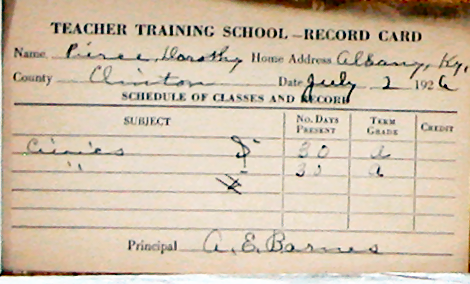 TEACHER TRAINING SCHOOL—RECORD CARD
Name Pierce, Dorothy Home Address Albany, Ky.
County Clinton Date July 2 1926
SCHEDULE OF CLASSES AND RECORD
SUBJECT No. DAYS PRESENT TERM GRADE CREDIT
Civics 30 a
" 30 a
Principal A. E. Barnes